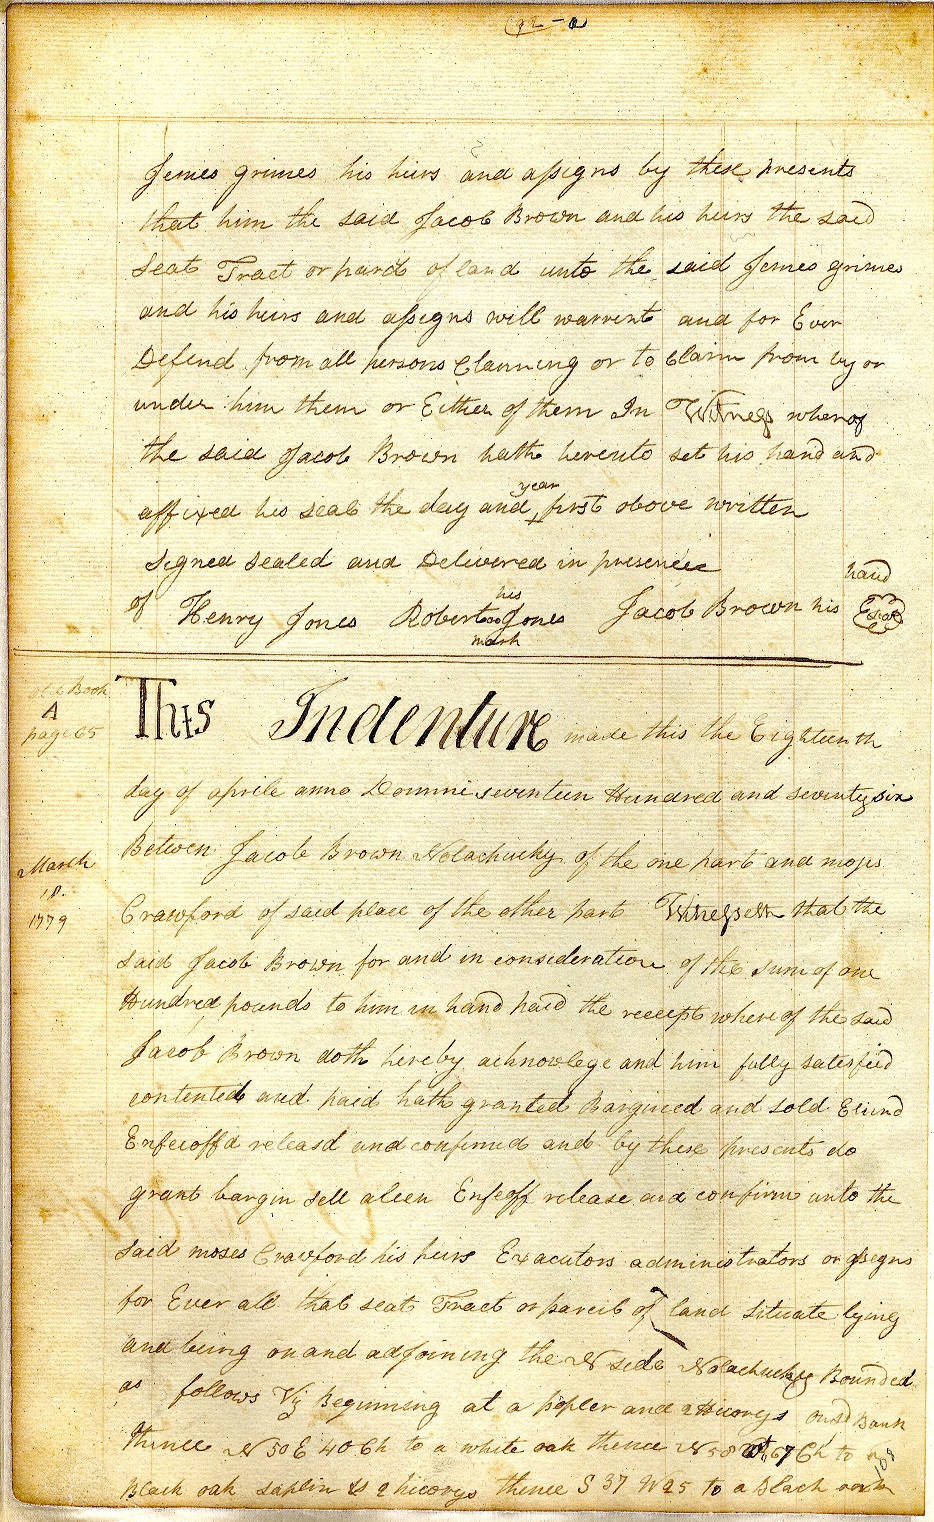 92-a
Jemes grimes his heirs and assigns by these presents
that him the said Jacob Brown and his heirs the said
seat Tract or parcl of land unto the said Jemes grimes
and his heirs and assigns will warrent and for Ever
Defend from all persons Claiming or to Claim from by or
under him them or Either of them In Witness wherof
the said Jacob Brown hath herento set his hand and
year
affixed his seal the day and first above written
signed sealed and Delivered in presence
hand
his
of Henry Jones Robert Jones Jacob Brown his Seal
mark
Old Book
A
page 65
This Indenture made this the Eighteenth
day of aprile anno Domini seventeen Hundred and seventy six
Betwen Jacob Brown Nolachucky of the one part and moses
March
18.
1779
Crawford of said place of the other part Witnesseth that the
said Jacob Brown for and in consideration of the sum of one
Hundred pounds to him in hand paid the receept where of the said
Jacob Brown doth hereby acknowlege and him fully satesfied
contented and paid hath granted Barguned and sold
Enfeoffd releasd and confirmed and by these presents do
grant bargin sell aleen Enfeoff release and confirm unto the
said moses Crawford his heirs Exacutors administrators or assegns
for Ever all that seat Tract or parcel of land situate lying
and being on and adjoining the N side Nolachucky Bounded
as follows Viz Beginning at a popler and 2 Hicorys on sd Bank
thence N 50 E 40 Ch to a white oak thence N 58 W 67 Ch to a
Black oak saplin & 2 hicorys thence S 37 W 25 to a Black oak